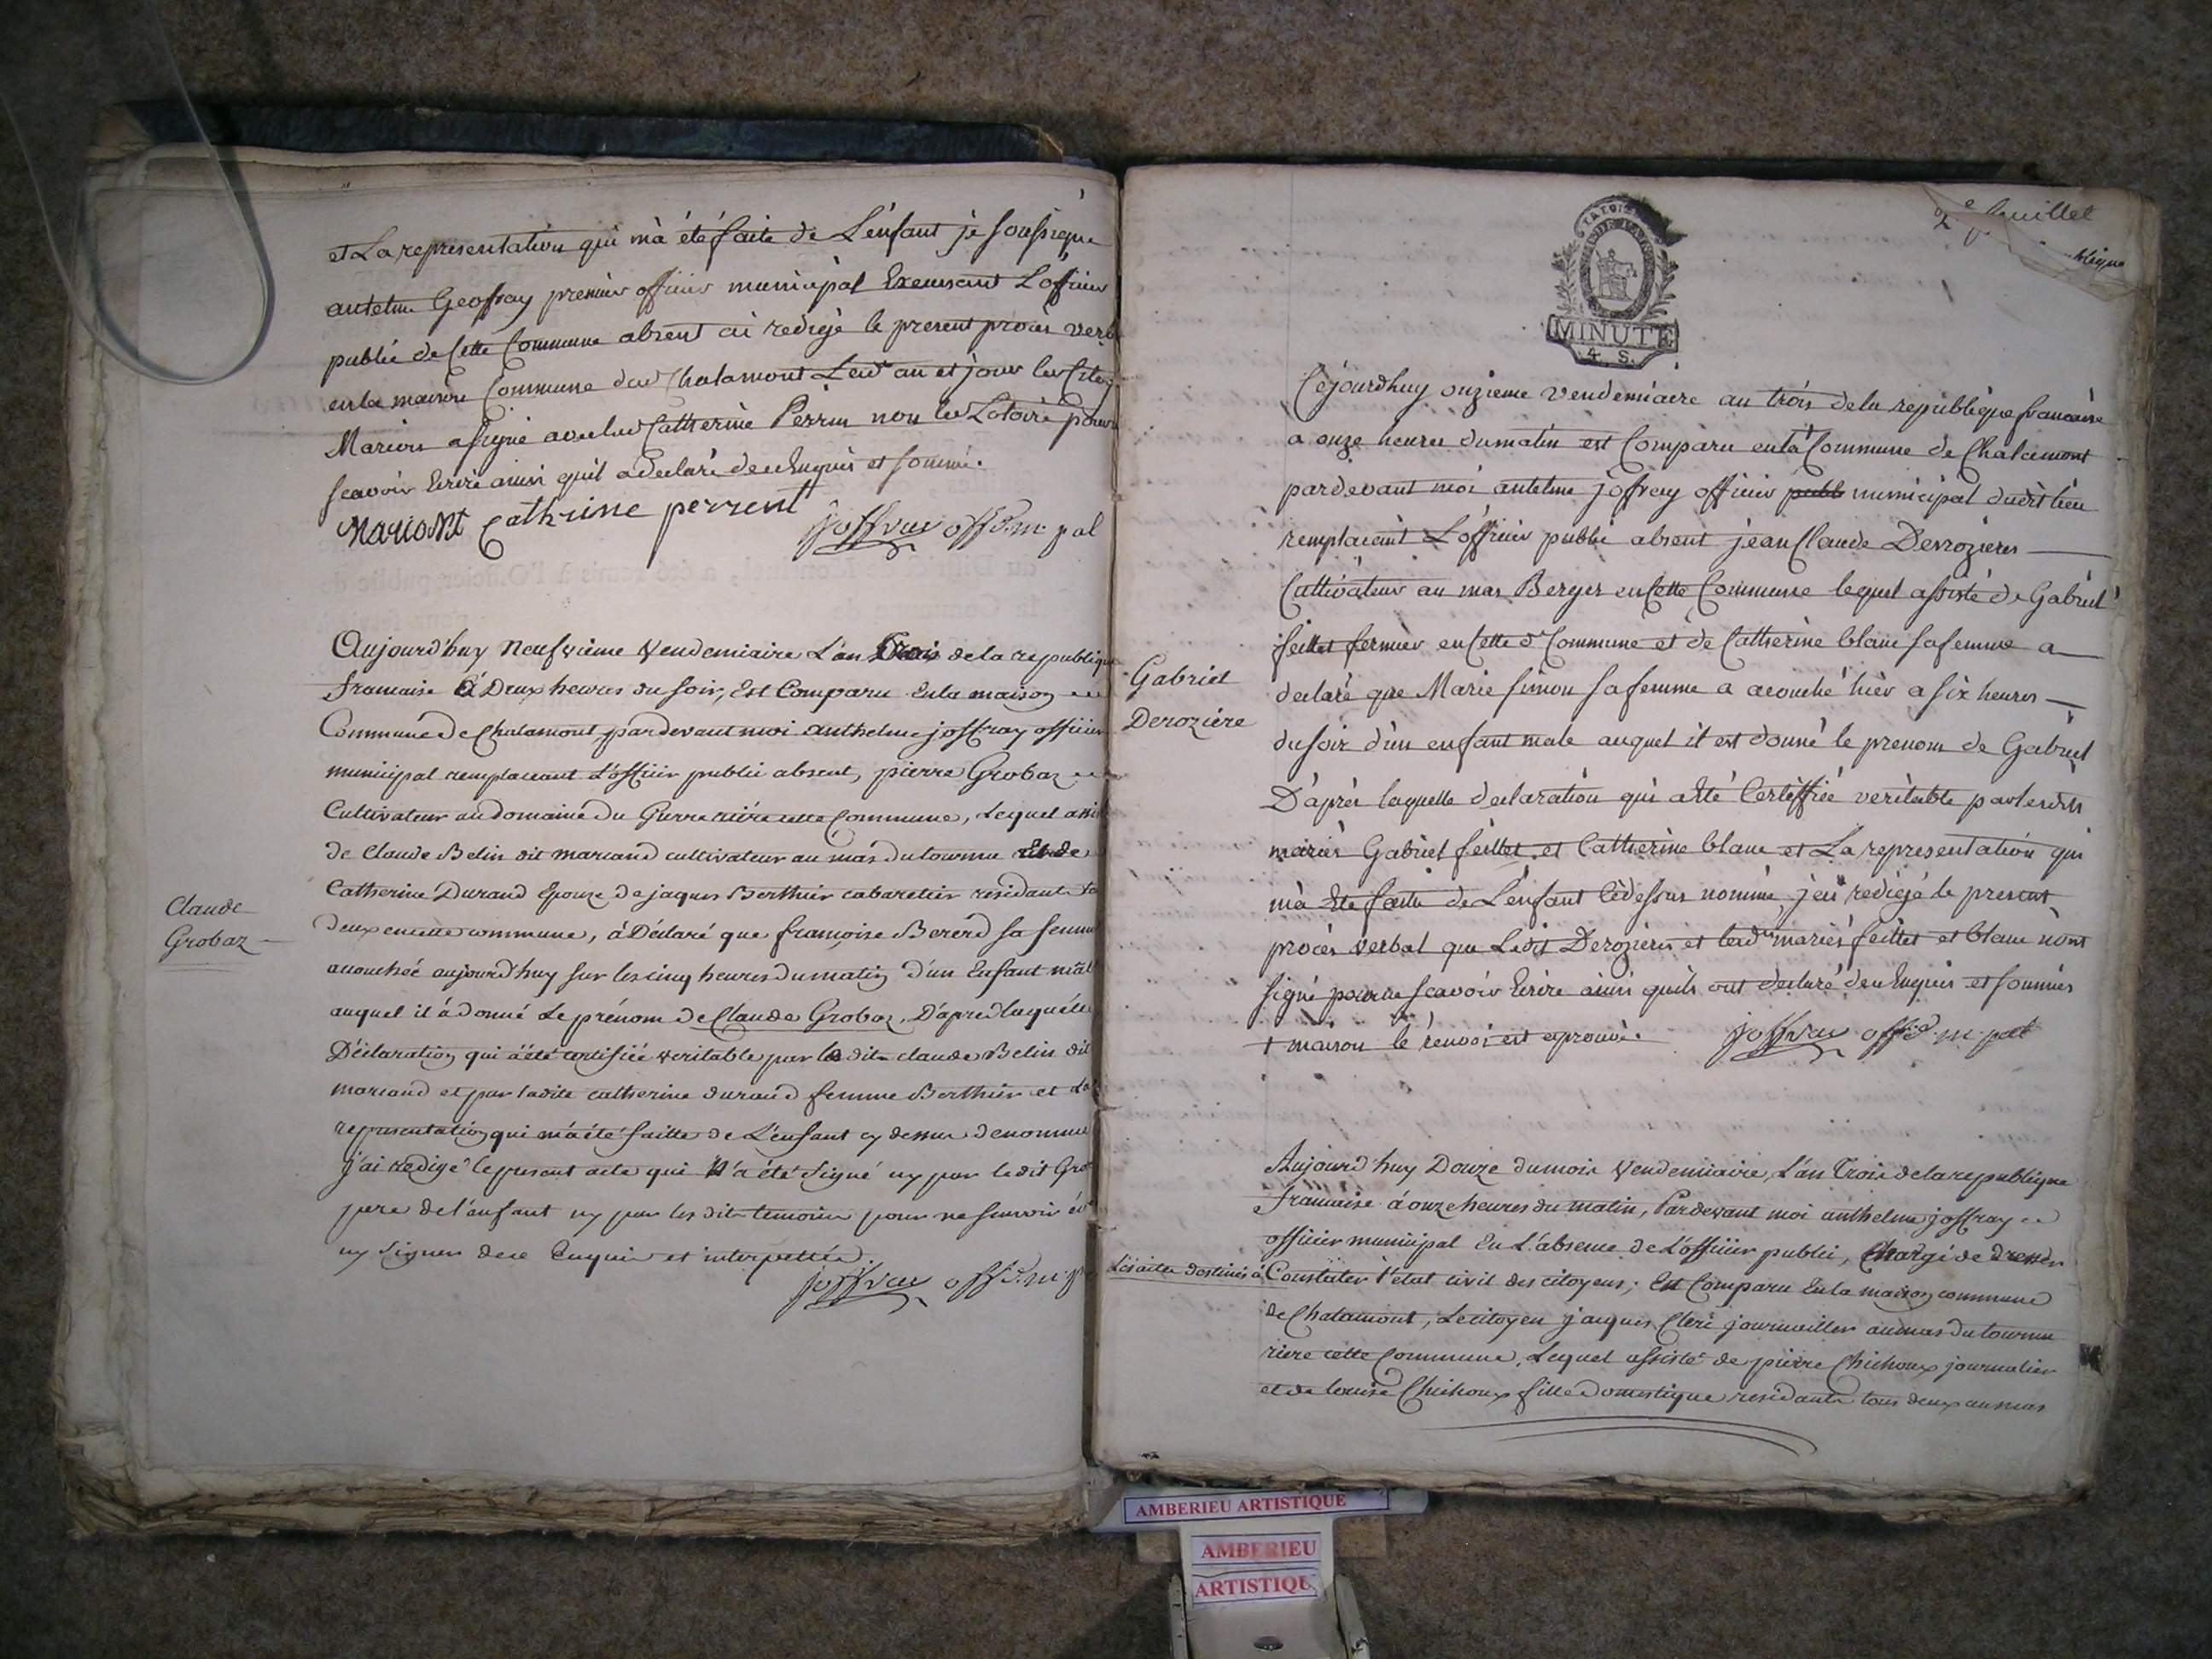 et La representation qui m'à été faite de L'énfant je soussigné
antelme Geoffray premier officier municipal Exerceant L'officier
public de Cette Commune absent ai redigé le present procès verb
en la maison Commune dud Chalamont Led an et jour led Citoy
Marion a signé avec lad Catherine Perrin non led Lotoire pour
scavoir Ecrire ainsi qu'il a declaré de ce Enquis et sommé.
Mariont Catherine perrent
joffray off. m. pal
Claude
Grobaz
Aujourd'huy Neufvieme Vendemiaire L'an Trois de la republique
francaise à Deux heures du soir, Est Comparu En la maison
Commune de Chalamont pardevant moi anthelme joffray officier
municipal remplaceant L'officier public absent, pierre Grobaz
Cultivateur au domaine du Guerre riére cette Commune, Lequel assis
de Claude Belin dit marcand cultivateur au mas du tournu Et de
Catherine Durand Epouze de jaques Berthier cabaretier residants to
deux en cette commune, à Déclaré que françoise Berérd sa femme
acouchée aujourd'huy sur les cinq heures du matin d'un Enfant mâl
auquel il à donné Le prénom de Claude Grobaz, D'après laquéle
Déclaration qui à été certifiée veritable par le dit claude Belin dit
marcand et par ladite catherine durand femme Berthier et La
représentation qui m'a été faitte de L'enfant cy dessus denommé
j'ai redigé le present acte qui N'a été signé ny par le dit Gro
pere de l'enfant ny par les dits temoins pour ne scavoir écr
ny signer de ce Enquis et interpellés
joffray off. m. p
2e feuillet
MINUTE
4. S.
Gabriel
Deroziere
Cejourdhuy onzieme Vendemiaire an trois de la republique francaise
a onze heures du matin est Comparu en la + Commune de Chalamont
pardevant moi antelme joffray officier publ municipal dudit lieu
remplacant L'officier public absent jean Claude Derrozieres
Cultivateur au mas Berger en Cette Commune lequel assisté de Gabriel
feillet fermier en Cette d Commune et de Catherine blanc sa femme a
declaré que Marie simon sa femme a acouché hièr a six heures
du soir d'un enfant male auquel il est donné le prenom de Gabriel
D'après laquelle declaration qui a été Certiffiée veritable par lesdits
mariés Gabriel feillet et Catherine blanc et La representation qui
m'à Eté faite de L'énfant cidessus nommé j'ai redigé le present
procès verbal que Ledit Derozieres et lesds mariés feillet et blanc n'ont
signé pour ne scavoir Ecrire ainsi quils ont declaré de ce Enquis et sommés
+ maison le renvoi est aprouvé. joffray off. m. pal
Aujourd'huy Douze du mois Vendemiaire, L'an Trois de la republique
francaise à onze heures du matin, Pardevant moi anthelme joffray
officier municipal En L'absence de L'officier public, Chargé de dresser
Les actes destinés à Constater l'etat civil des citoyens; Est Comparu En la maison commune
de Chalamont, Le citoyen jacques Cleri journaillier au mas du tournu
riere cette Commune, Lequel assisté de pierre Chichoux journalier
et de louise Chichoux fille domestique residants tous deux au mas
AMBERIEU ARTISTIQUE
AMBERIEU
ARTISTIQU